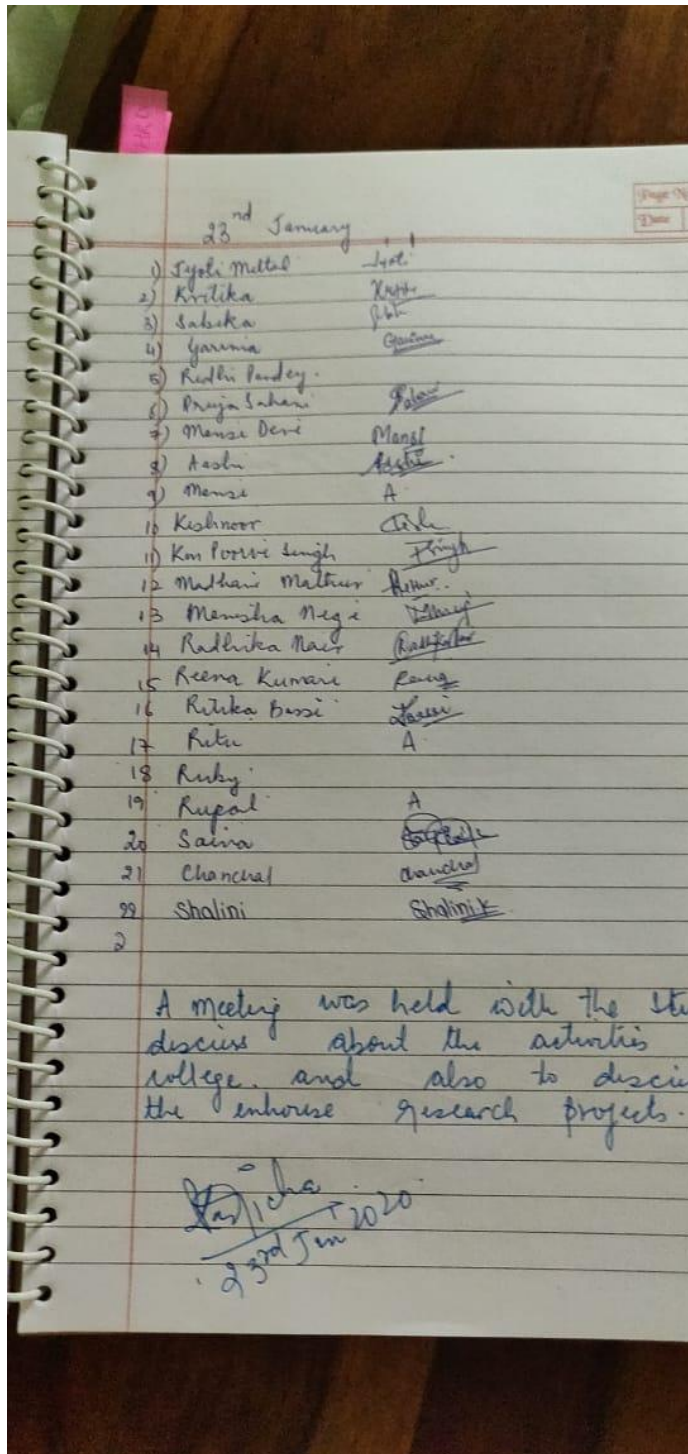 HR
Page N
Date
23rd January
1) Jyoti Mittal Jyoti
2) Kritika
3) Sabika
4) Garima Garima
5) Ridhi Pandey.
6) Pruja Sahani
7) Mansi Devi Mansi
8) Aashi Aashi
9) Mansi A
10 Kishnoor
11) Km Poorvi Singh PSingh
12 Madhavi Mathur
13 Manisha Negi
14 Radhika Nair Radhika Nair
15 Reena Kumari Reena
16 Ritika Bassi
17 Ritu A
18 Ruby
19 Rupal A
20 Saina
21 Chanchal Chanchal
22 Shalini Shalini K
2
A meeting was held with the Stu
discuss about the activities
college. and also to discu
the inhouse research projects.
23rd Jan 2020